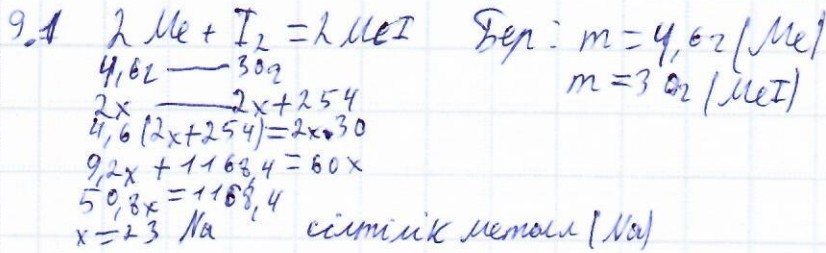 9.1 2Me + I₂ = 2MeI Бер: m = 4,6г (Me)
4,6г — 30г m = 30г (MeI)
2x — 2x+254
4,6(2x+254)=2x·30
9,2x + 1168,4 = 60x
50,8x = 1168,4
x = 23 Na сілтілік металл (Na)